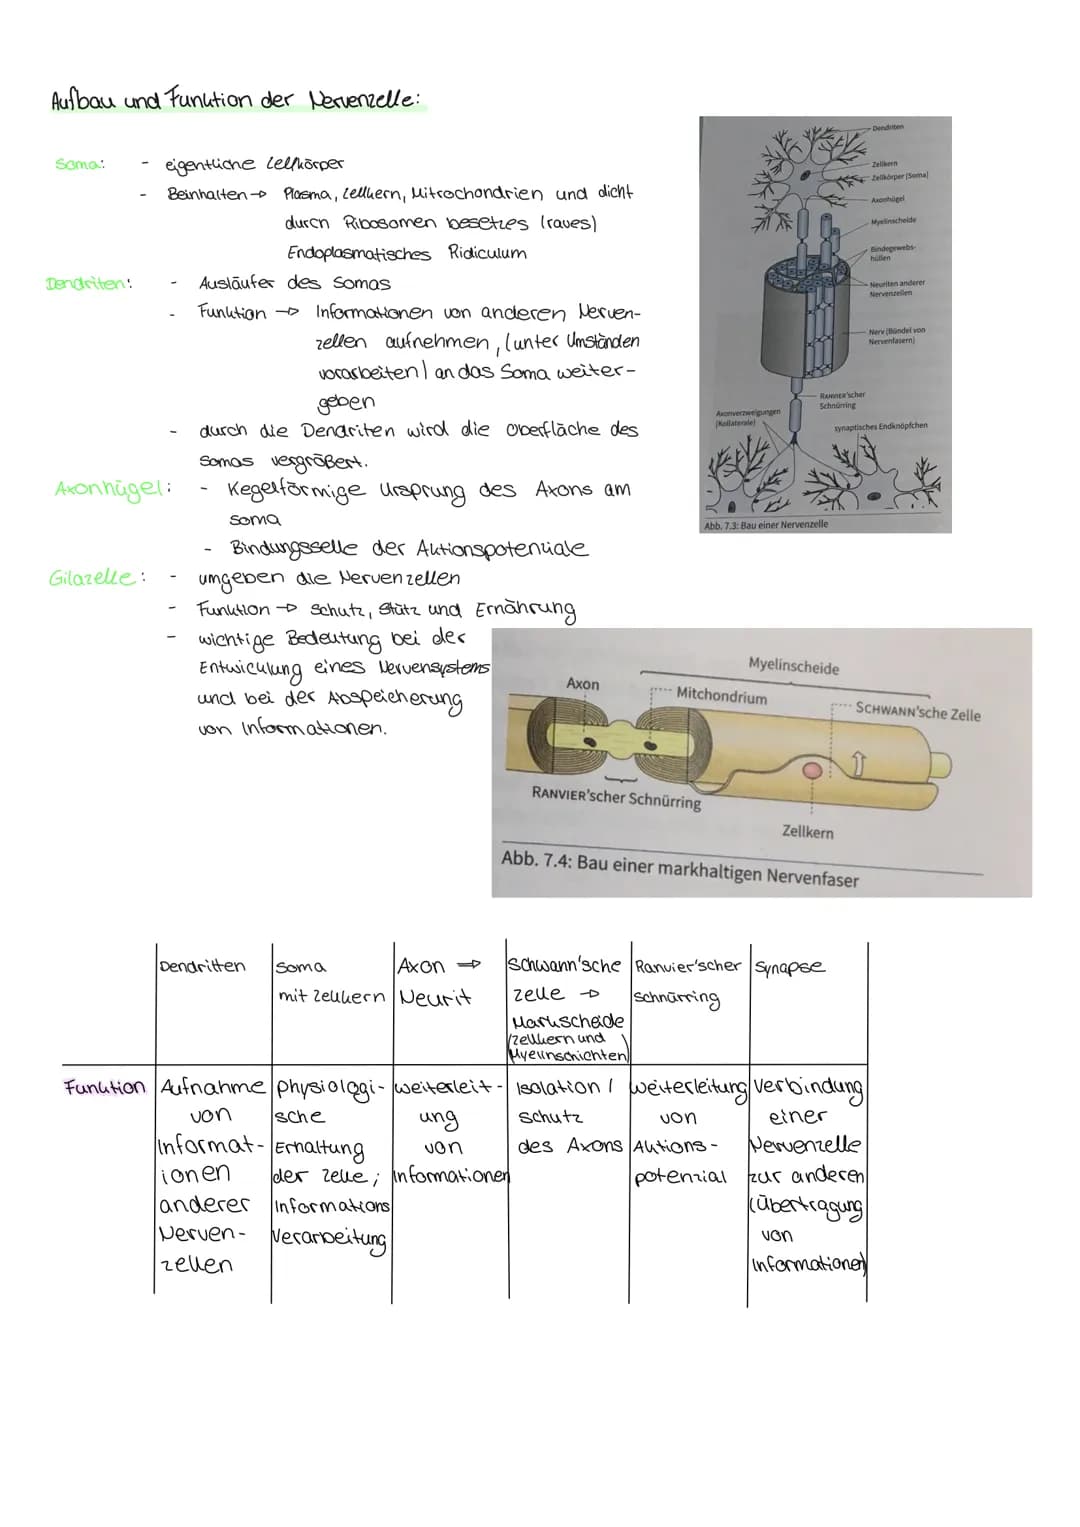 Aufbau und Funktion der Nervenzelle:
Soma: - eigentliche Zellkörper
- Beinhalten → Plasma, Zellkern, Mitrochondrien und dicht
durch Ribosomen besetzes (raues)
Endoplasmatisches Ridiculum
Dendriten: - Ausläufer des Somas
- Funktion → Informationen von anderen Nerven-
zellen aufnehmen, (unter Umständen
vorarbeiten) an das Soma weiter-
geben
- durch die Dendriten wird die Oberfläche des
Somas vergrößert.
Axonhügel: - Kegelförmige Ursprung des Axons am
Soma
- Bindungsselle der Aktionspotenziale
Gilazelle: - umgeben die Nervenzellen
- Funktion → Schutz, Stütz und Ernährung
- wichtige Bedeutung bei der
Entwicklung eines Nervensystems
und bei der Abspeicherung
von Informationen.
Dendriten
Zellkern
Zellkörper (Soma)
Axonhügel
Myelinscheide
Bindegewebs-
hüllen
Neuriten anderer
Nervenzellen
Nerv (Bündel von
Nervenfasern)
RANVIER'scher
Schnürring
Axonverzweigungen
(Kollaterale)
synaptisches Endknöpfchen
Abb. 7.3: Bau einer Nervenzelle
Myelinscheide
Axon
Mitchondrium
SCHWANN'sche Zelle
RANVIER'scher Schnürring
Zellkern
Abb. 7.4: Bau einer markhaltigen Nervenfaser
Dendritten
Soma
mit Zellkern
Axon →
Neurit
Schwann'sche
Zelle →
Markscheide
(Zellkern und
Myelinschichten)
Ranvier'scher
Schnürring
Synapse
Funktion
Aufnahme
von
Informat-
ionen
anderer
Nerven-
zellen
Physiologi-
sche
Erhaltung
der Zelle;
Informations
Verarbeitung
Weiterleit-
ung
von
Informationen
Isolation /
Schutz
des Axons
Weiterleitung
von
Aktions-
potenzial
Verbindung
einer
Nervenzelle
zur anderen
(Übertragung
von
Informationen)